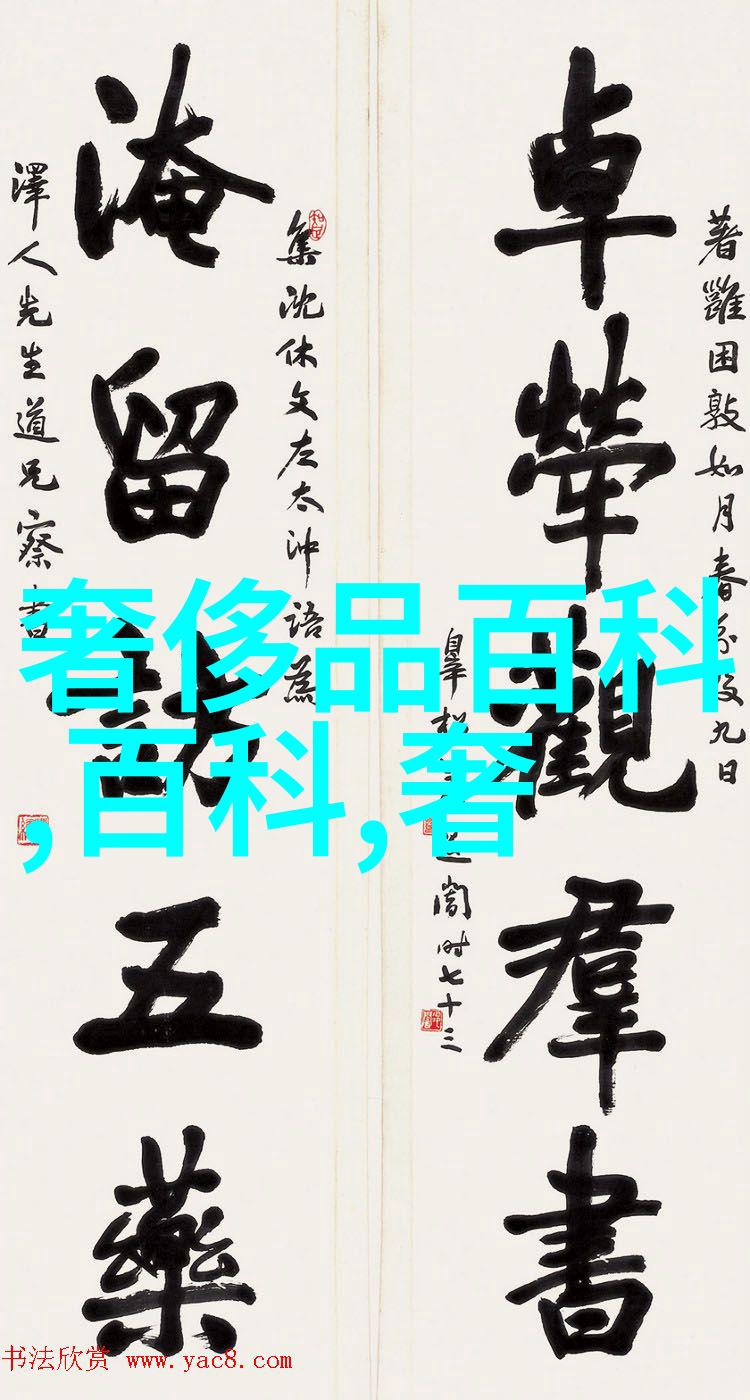 著雝困敦如月春分后九日
卓犖觀羣書
時七十三
集沈休文左太沖語為
淹留五藥
澤人先生道兄察書
奢侈品百科
,百科,奢
书法欣赏 www.yac8.com